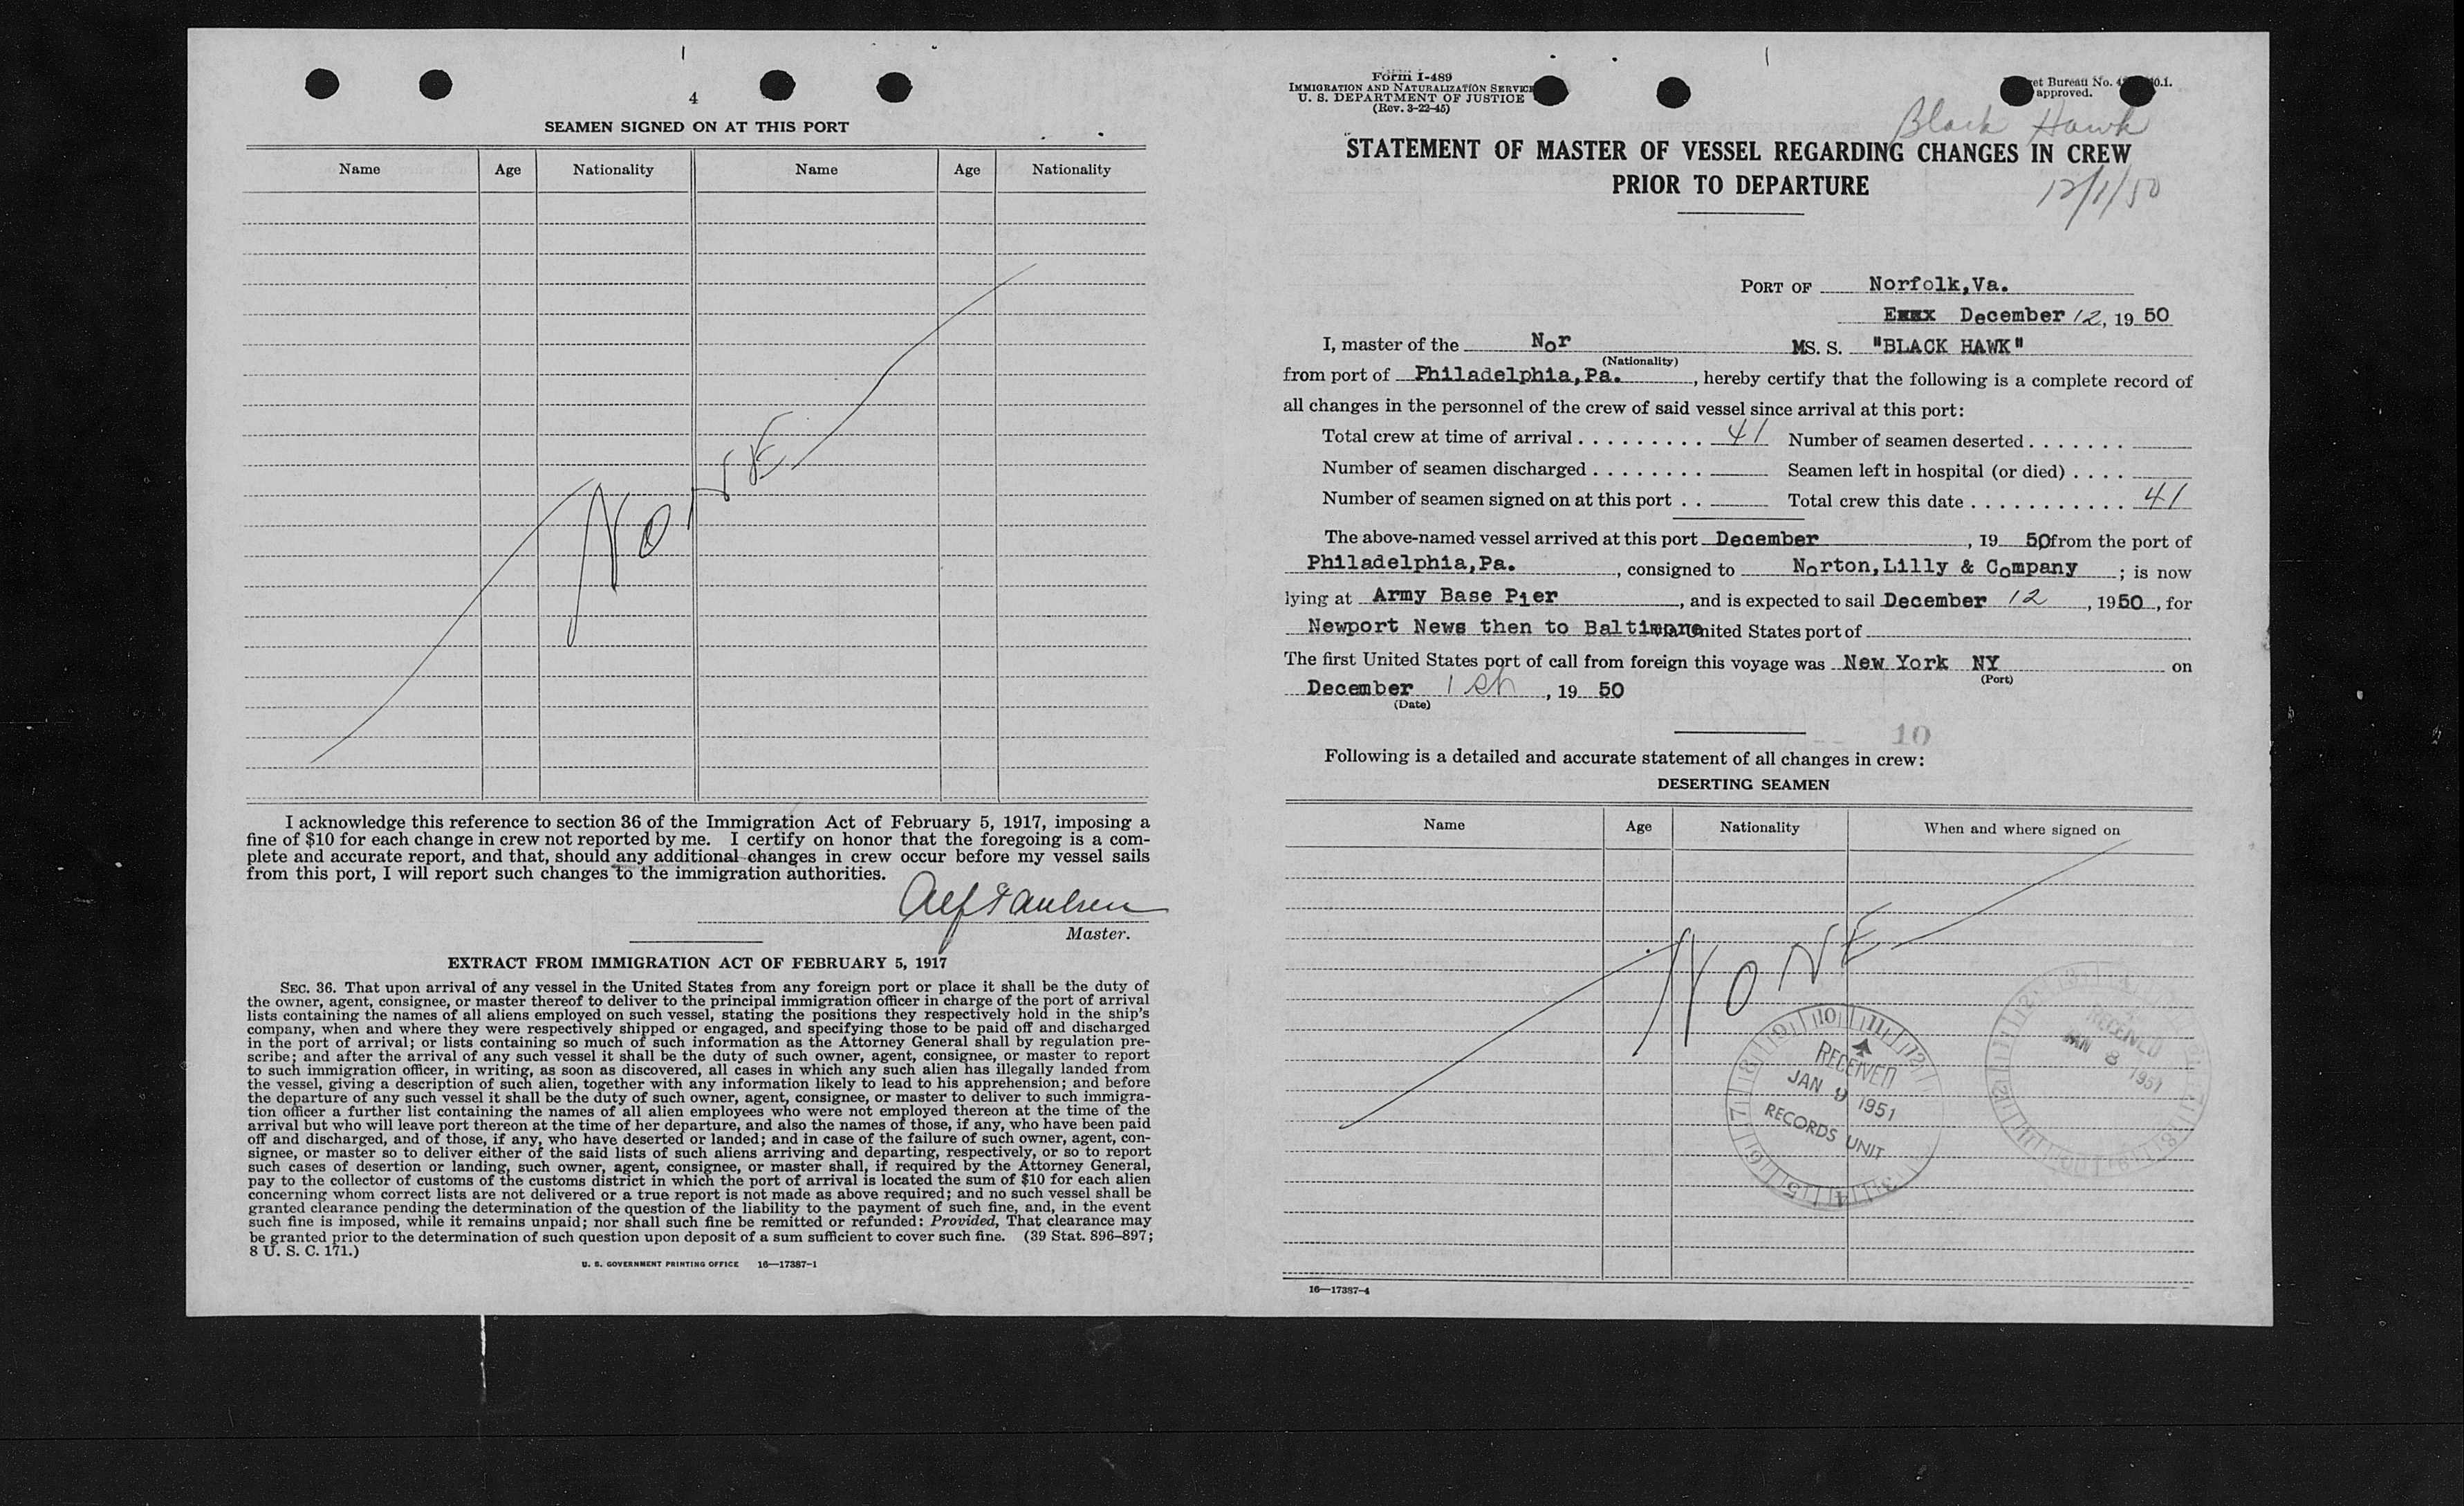 4
SEAMEN SIGNED ON AT THIS PORT
Name Age Nationality Name Age Nationality
NONE
I acknowledge this reference to section 36 of the Immigration Act of February 5, 1917, imposing a
fine of $10 for each change in crew not reported by me. I certify on honor that the foregoing is a com-
plete and accurate report, and that, should any additional changes in crew occur before my vessel sails
from this port, I will report such changes to the immigration authorities.
Alf Paulsen
Master.
EXTRACT FROM IMMIGRATION ACT OF FEBRUARY 5, 1917
SEC. 36. That upon arrival of any vessel in the United States from any foreign port or place it shall be the duty of
the owner, agent, consignee, or master thereof to deliver to the principal immigration officer in charge of the port of arrival
lists containing the names of all aliens employed on such vessel, stating the positions they respectively hold in the ship's
company, when and where they were respectively shipped or engaged, and specifying those to be paid off and discharged
in the port of arrival; or lists containing so much of such information as the Attorney General shall by regulation pre-
scribe; and after the arrival of any such vessel it shall be the duty of such owner, agent, consignee, or master to report
to such immigration officer, in writing, as soon as discovered, all cases in which any such alien has illegally landed from
the vessel, giving a description of such alien, together with any information likely to lead to his apprehension; and before
the departure of any such vessel it shall be the duty of such owner, agent, consignee, or master to deliver to such immigra-
tion officer a further list containing the names of all alien employees who were not employed thereon at the time of the
arrival but who will leave port thereon at the time of her departure, and also the names of those, if any, who have been paid
off and discharged, and of those, if any, who have deserted or landed; and in case of the failure of such owner, agent, con-
signee, or master so to deliver either of the said lists of such aliens arriving and departing, respectively, or so to report
such cases of desertion or landing, such owner, agent, consignee, or master shall, if required by the Attorney General,
pay to the collector of customs of the customs district in which the port of arrival is located the sum of $10 for each alien
concerning whom correct lists are not delivered or a true report is not made as above required; and no such vessel shall be
granted clearance pending the determination of the question of the liability to the payment of such fine, and, in the event
such fine is imposed, while it remains unpaid; nor shall such fine be remitted or refunded: Provided, That clearance may
be granted prior to the determination of such question upon deposit of a sum sufficient to cover such fine. (39 Stat. 896–897;
8 U. S. C. 171.)
U. S. GOVERNMENT PRINTING OFFICE 16—17387-1
Form I-489
IMMIGRATION AND NATURALIZATION SERVICE
U. S. DEPARTMENT OF JUSTICE
(Rev. 3-22-45)
Bureau No.
approved.
Black Hawk
STATEMENT OF MASTER OF VESSEL REGARDING CHANGES IN CREW
PRIOR TO DEPARTURE
12/1/50
PORT OF Norfolk,Va.
December 12, 19 50
I, master of the Nor MS. S. "BLACK HAWK"
(Nationality)
from port of Philadelphia,Pa. , hereby certify that the following is a complete record of
all changes in the personnel of the crew of said vessel since arrival at this port:
Total crew at time of arrival . . . . . . . . . 41 Number of seamen deserted . . . . . . .
Number of seamen discharged . . . . . . . . Seamen left in hospital (or died) . . . .
Number of seamen signed on at this port . . Total crew this date . . . . . . . . . . . 41
The above-named vessel arrived at this port December , 19 50 from the port of
Philadelphia,Pa. , consigned to Norton,Lilly & Company ; is now
lying at Army Base Pier , and is expected to sail December 12 , 1950 , for
Newport News then to Baltimore via United States port of
The first United States port of call from foreign this voyage was New York NY on
(Port)
December 1 , 19 50
(Date)
10
Following is a detailed and accurate statement of all changes in crew:
DESERTING SEAMEN
Name Age Nationality When and where signed on
NONE
RECEIVED
JAN 9 1951
RECORDS UNIT
RECEIVED
JAN 8 1951
16—17387-4